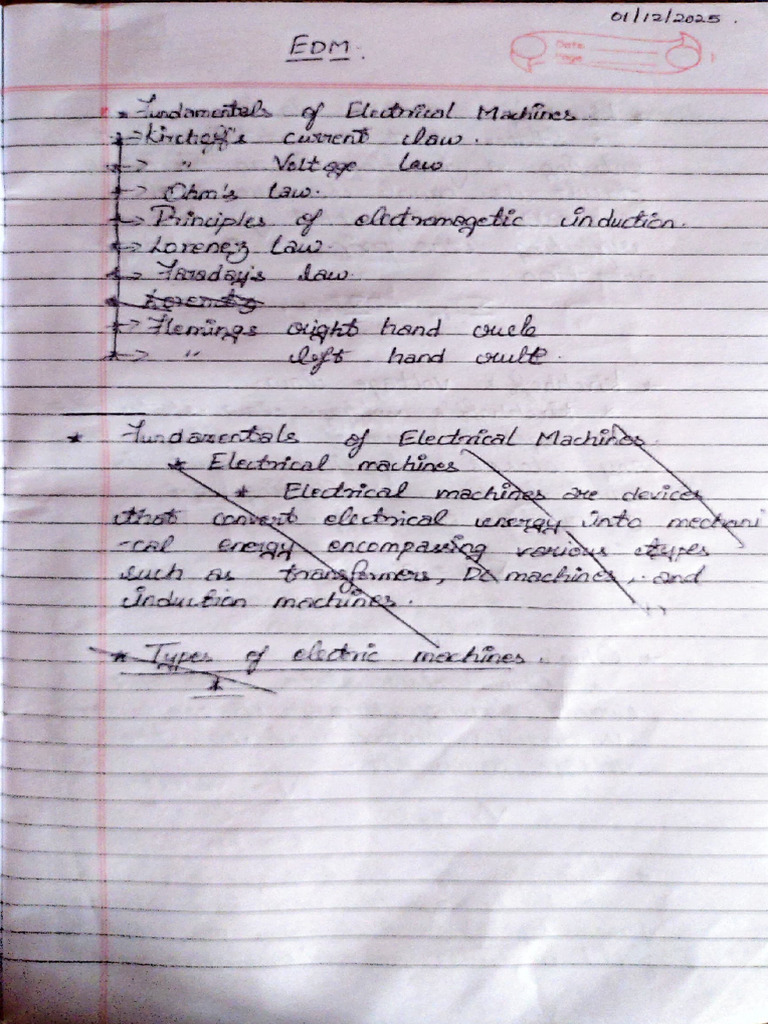 01/12/2025.
EDM.
Date
Page
* Fundamentals of Electrical Machines
* → Kirchoff's current law.
* → " Voltage law
* → Ohm's law.
* → Principles of electromagetic induction.
* → Lorenez law.
* → Faraday's law.
* → Lorentz
* → Flemings right hand rule
* → " left hand rule.
* Fundamentals of Electrical Machines.
* Electrical machines
* Electrical machines are devices
that convert electrical energy into mechani
-cal energy encompassing various types
such as transformers, DC machines, and
induction machines.
* Types of electric machines.
*